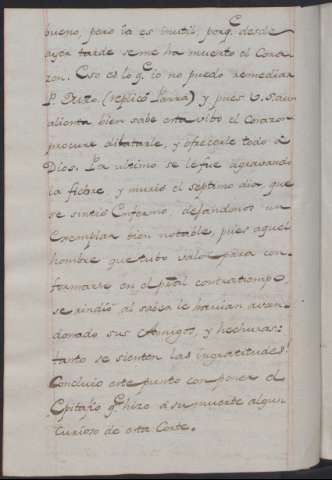 bueno, pero ya es inutil, porq.e desde
ayer tarde se me ha muerto el Cora-
zon. Eso es lo q.e io no puedo remediar
P. Orizo. (replicó Parra) y pues V. S. aun
alienta bien sabe esta vibo el Corazon
procure dilatarle, y ofrecerle todo á
Dios. Pr. ultimo se le fue agravando
la fiebre, y murió el septimo dia, que
se sintió enfermo, dejandonos un
exemplar bien notable, pues aquel
hombre que tubo valor para con-
formarse en el p.pal contratiempo,
se rindió al saber le havian avan-
donado sus Amigos, y hechuras:
tanto se sienten las ingratitudes.
Concluio este punto con poner el
Epitafio q.e hizo á su muerte algun
curioso de esta Corte.